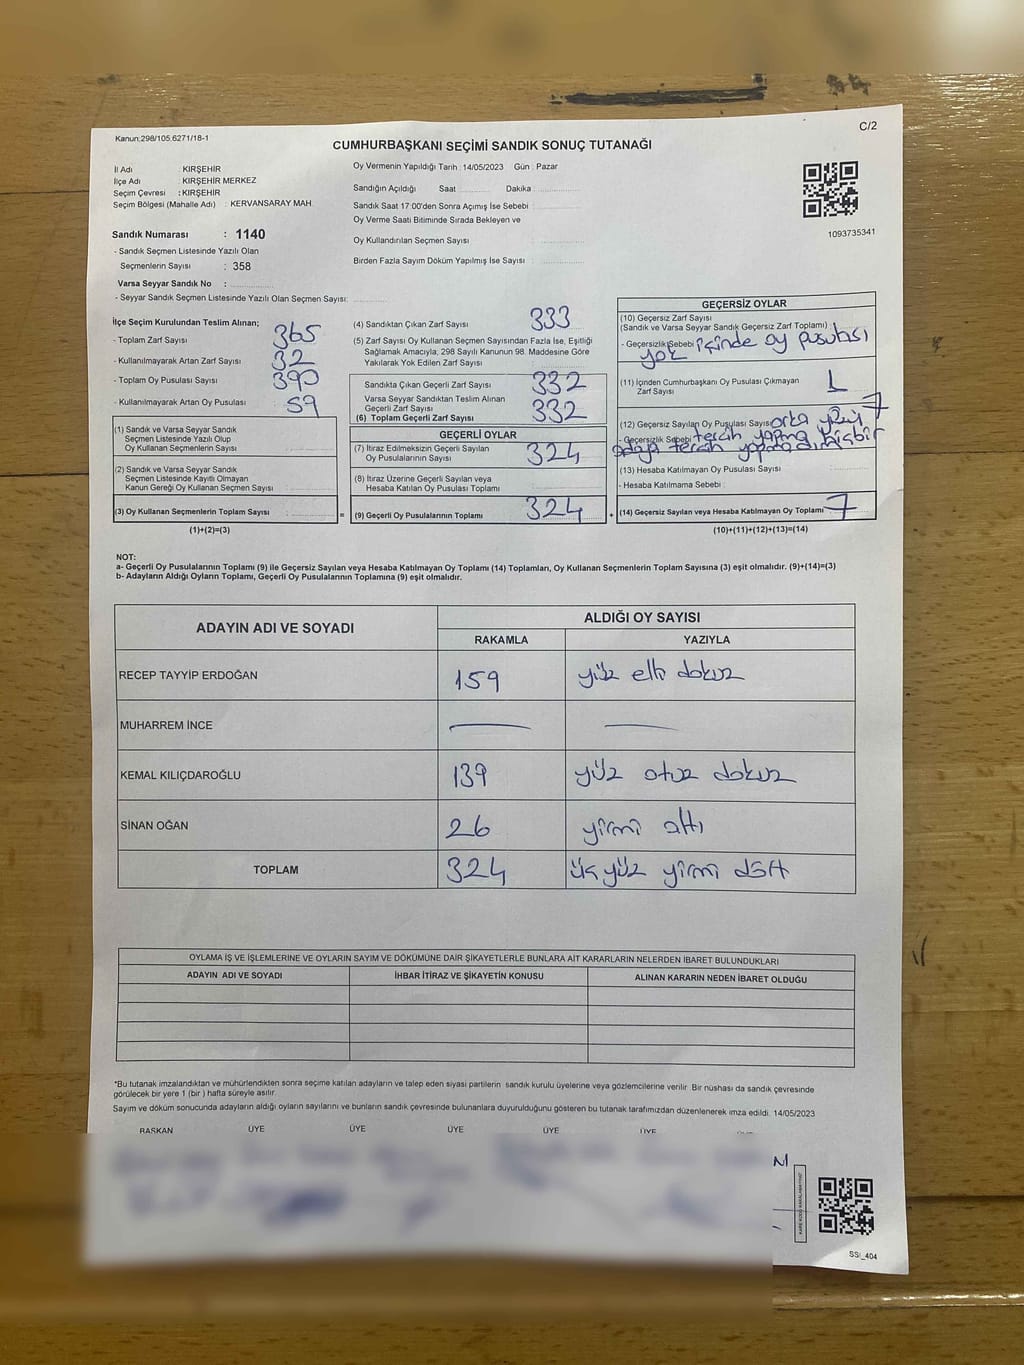 Kanun:298/105.6271/18-1
C/2
CUMHURBAŞKANI SEÇİMİ SANDIK SONUÇ TUTANAĞI
İl Adı KIRŞEHİR
İlçe Adı KIRŞEHİR MERKEZ
Seçim Çevresi : KIRŞEHİR
Seçim Bölgesi (Mahalle Adı) : KERVANSARAY MAH.
Sandık Numarası : 1140
- Sandık Seçmen Listesinde Yazılı Olan
Seçmenlerin Sayısı : 358
Varsa Seyyar Sandık No :
- Seyyar Sandık Seçmen Listesinde Yazılı Olan Seçmen Sayısı:
Oy Vermenin Yapıldığı Tarih : 14/05/2023 Gün : Pazar
Sandığın Açıldığı Saat Dakika
Sandık Saat 17:00'den Sonra Açımış İse Sebebi
Oy Verme Saati Bitiminde Sırada Bekleyen ve
Oy Kullandırılan Seçmen Sayısı :
Birden Fazla Sayım Döküm Yapılmış İse Sayısı :
1093735341
İlçe Seçim Kurulundan Teslim Alınan;
- Toplam Zarf Sayısı : 365
- Kullanılmayarak Artan Zarf Sayısı : 32
- Toplam Oy Pusulası Sayısı : 390
- Kullanılmayarak Artan Oy Pusulası : 59
(1) Sandık ve Varsa Seyyar Sandık
Seçmen Listesinde Yazılı Olup
Oy Kullanan Seçmenlerin Sayısı :
(2) Sandık ve Varsa Seyyar Sandık
Seçmen Listesinde Kayıtlı Olmayan
Kanun Gereği Oy Kullanan Seçmen Sayısı :
(3) Oy Kullanan Seçmenlerin Toplam Sayısı :
(1)+(2)=(3)
(4) Sandıktan Çıkan Zarf Sayısı : 333
(5) Zarf Sayısı Oy Kullanan Seçmen Sayısından Fazla İse, Eşitliği
Sağlamak Amacıyla, 298 Sayılı Kanunun 98. Maddesine Göre
Yakılarak Yok Edilen Zarf Sayısı :
Sandıkta Çıkan Geçerli Zarf Sayısı : 332
Varsa Seyyar Sandıktan Teslim Alınan
Geçerli Zarf Sayısı
(6) Toplam Geçerli Zarf Sayısı : 332
GEÇERLİ OYLAR
(7) İtiraz Edilmeksizin Geçerli Sayılan
Oy Pusulalarının Sayısı : 324
(8) İtiraz Üzerine Geçerli Sayılan veya
Hesaba Katılan Oy Pusulası Toplamı :
= (9) Geçerli Oy Pusulalarının Toplamı : 324 +
GEÇERSİZ OYLAR
(10) Geçersiz Zarf Sayısı
(Sandık ve Varsa Seyyar Sandık Geçersiz Zarf Toplamı) :
- Geçersizlik Sebebi : içinde oy pusulası
yok
(11) İçinden Cumhurbaşkanı Oy Pusulası Çıkmayan
Zarf Sayısı : 1
(12) Geçersiz Sayılan Oy Pusulası Sayısı 7
- Geçersizlik Sebebi tercih yapma
adaya tercih yapmadı hiçbir
(13) Hesaba Katılmayan Oy Pusulası Sayısı :
- Hesaba Katılmama Sebebi :
(14) Geçersiz Sayılan veya Hesaba Katılmayan Oy Toplamı : 7
(10)+(11)+(12)+(13)=(14)
NOT:
a- Geçerli Oy Pusulalarının Toplamı (9) ile Geçersiz Sayılan veya Hesaba Katılmayan Oy Toplamı (14) Toplamları, Oy Kullanan Seçmenlerin Toplam Sayısına (3) eşit olmalıdır. (9)+(14)=(3)
b- Adayların Aldığı Oyların Toplamı, Geçerli Oy Pusulalarının Toplamına (9) eşit olmalıdır.
ADAYIN ADI VE SOYADI ALDIĞI OY SAYISI
RAKAMLA YAZIYLA
RECEP TAYYİP ERDOĞAN 159 yüz elli dokuz
MUHARREM İNCE — —
KEMAL KILIÇDAROĞLU 139 yüz otuz dokuz
SİNAN OĞAN 26 yirmi altı
TOPLAM 324 üç yüz yirmi dört
OYLAMA İŞ VE İŞLEMLERİNE VE OYLARIN SAYIM VE DÖKÜMÜNE DAİR ŞİKAYETLERLE BUNLARA AİT KARARLARIN NELERDEN İBARET BULUNDUKLARI
ADAYIN ADI VE SOYADI İHBAR İTİRAZ VE ŞİKAYETİN KONUSU ALINAN KARARIN NEDEN İBARET OLDUĞU
*Bu tutanak imzalandıktan ve mühürlendikten sonra seçime katılan adayların ve talep eden siyasi partilerin sandık kurulu üyelerine veya gözlemcilerine verilir. Bir nüshası da sandık çevresinde
görülecek bir yere 1 (bir) hafta süreyle asılır.
Sayım ve döküm sonucunda adayların aldığı oyların sayılarını ve bunların sandık çevresinde bulunanlara duyurulduğunu gösteren bu tutanak tarafımızdan düzenlenerek imza edildi. 14/05/2023
BAŞKAN ÜYE ÜYE ÜYE ÜYE ÜYE
SSI_404